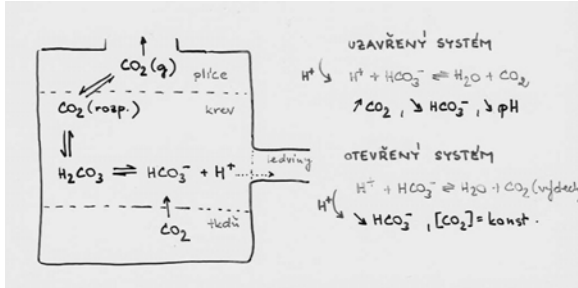 CO₂(g)
plíce
CO₂(rozp.)
krev
H₂CO₃ ⇌ HCO₃⁻ + H⁺
ledviny
CO₂
tkáň
UZAVŘENÝ SYSTÉM
H⁺
H⁺ + HCO₃⁻ ⇌ H₂O + CO₂
↗ CO₂, ↘ HCO₃⁻, ↘ pH
OTEVŘENÝ SYSTÉM
H⁺ + HCO₃⁻ ⇌ H₂O + CO₂ (výdech
H⁺
↘ HCO₃⁻, [CO₂] = konst.